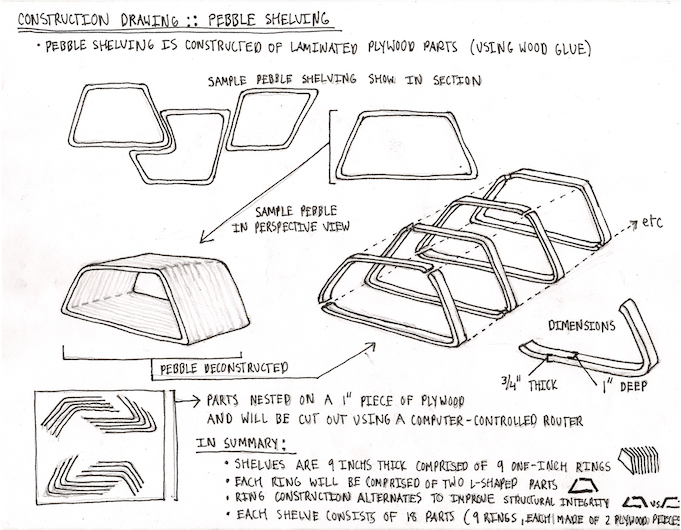 CONSTRUCTION DRAWING :: PEBBLE SHELVING
• PEBBLE SHELVING IS CONSTRUCTED OF LAMINATED PLYWOOD PARTS (USING WOOD GLUE)
SAMPLE PEBBLE SHELVING SHOW IN SECTION
SAMPLE PEBBLE
IN PERSPECTIVE VIEW
etc
DIMENSIONS
3/4" THICK
1" DEEP
PEBBLE DECONSTRUCTED
PARTS NESTED ON A 1" PIECE OF PLYWOOD
AND WILL BE CUT OUT USING A COMPUTER-CONTROLLED ROUTER
IN SUMMARY:
• SHELVES ARE 9 INCHS THICK COMPRISED OF 9 ONE-INCH RINGS
• EACH RING WILL BE COMPRISED OF TWO L-SHAPED PARTS
• RING CONSTRUCTION ALTERNATES TO IMPROVE STRUCTURAL INTEGRITY VS
• EACH SHELVE CONSISTS OF 18 PARTS (9 RINGS, EACH MADE OF 2 PLYWOOD PIECES